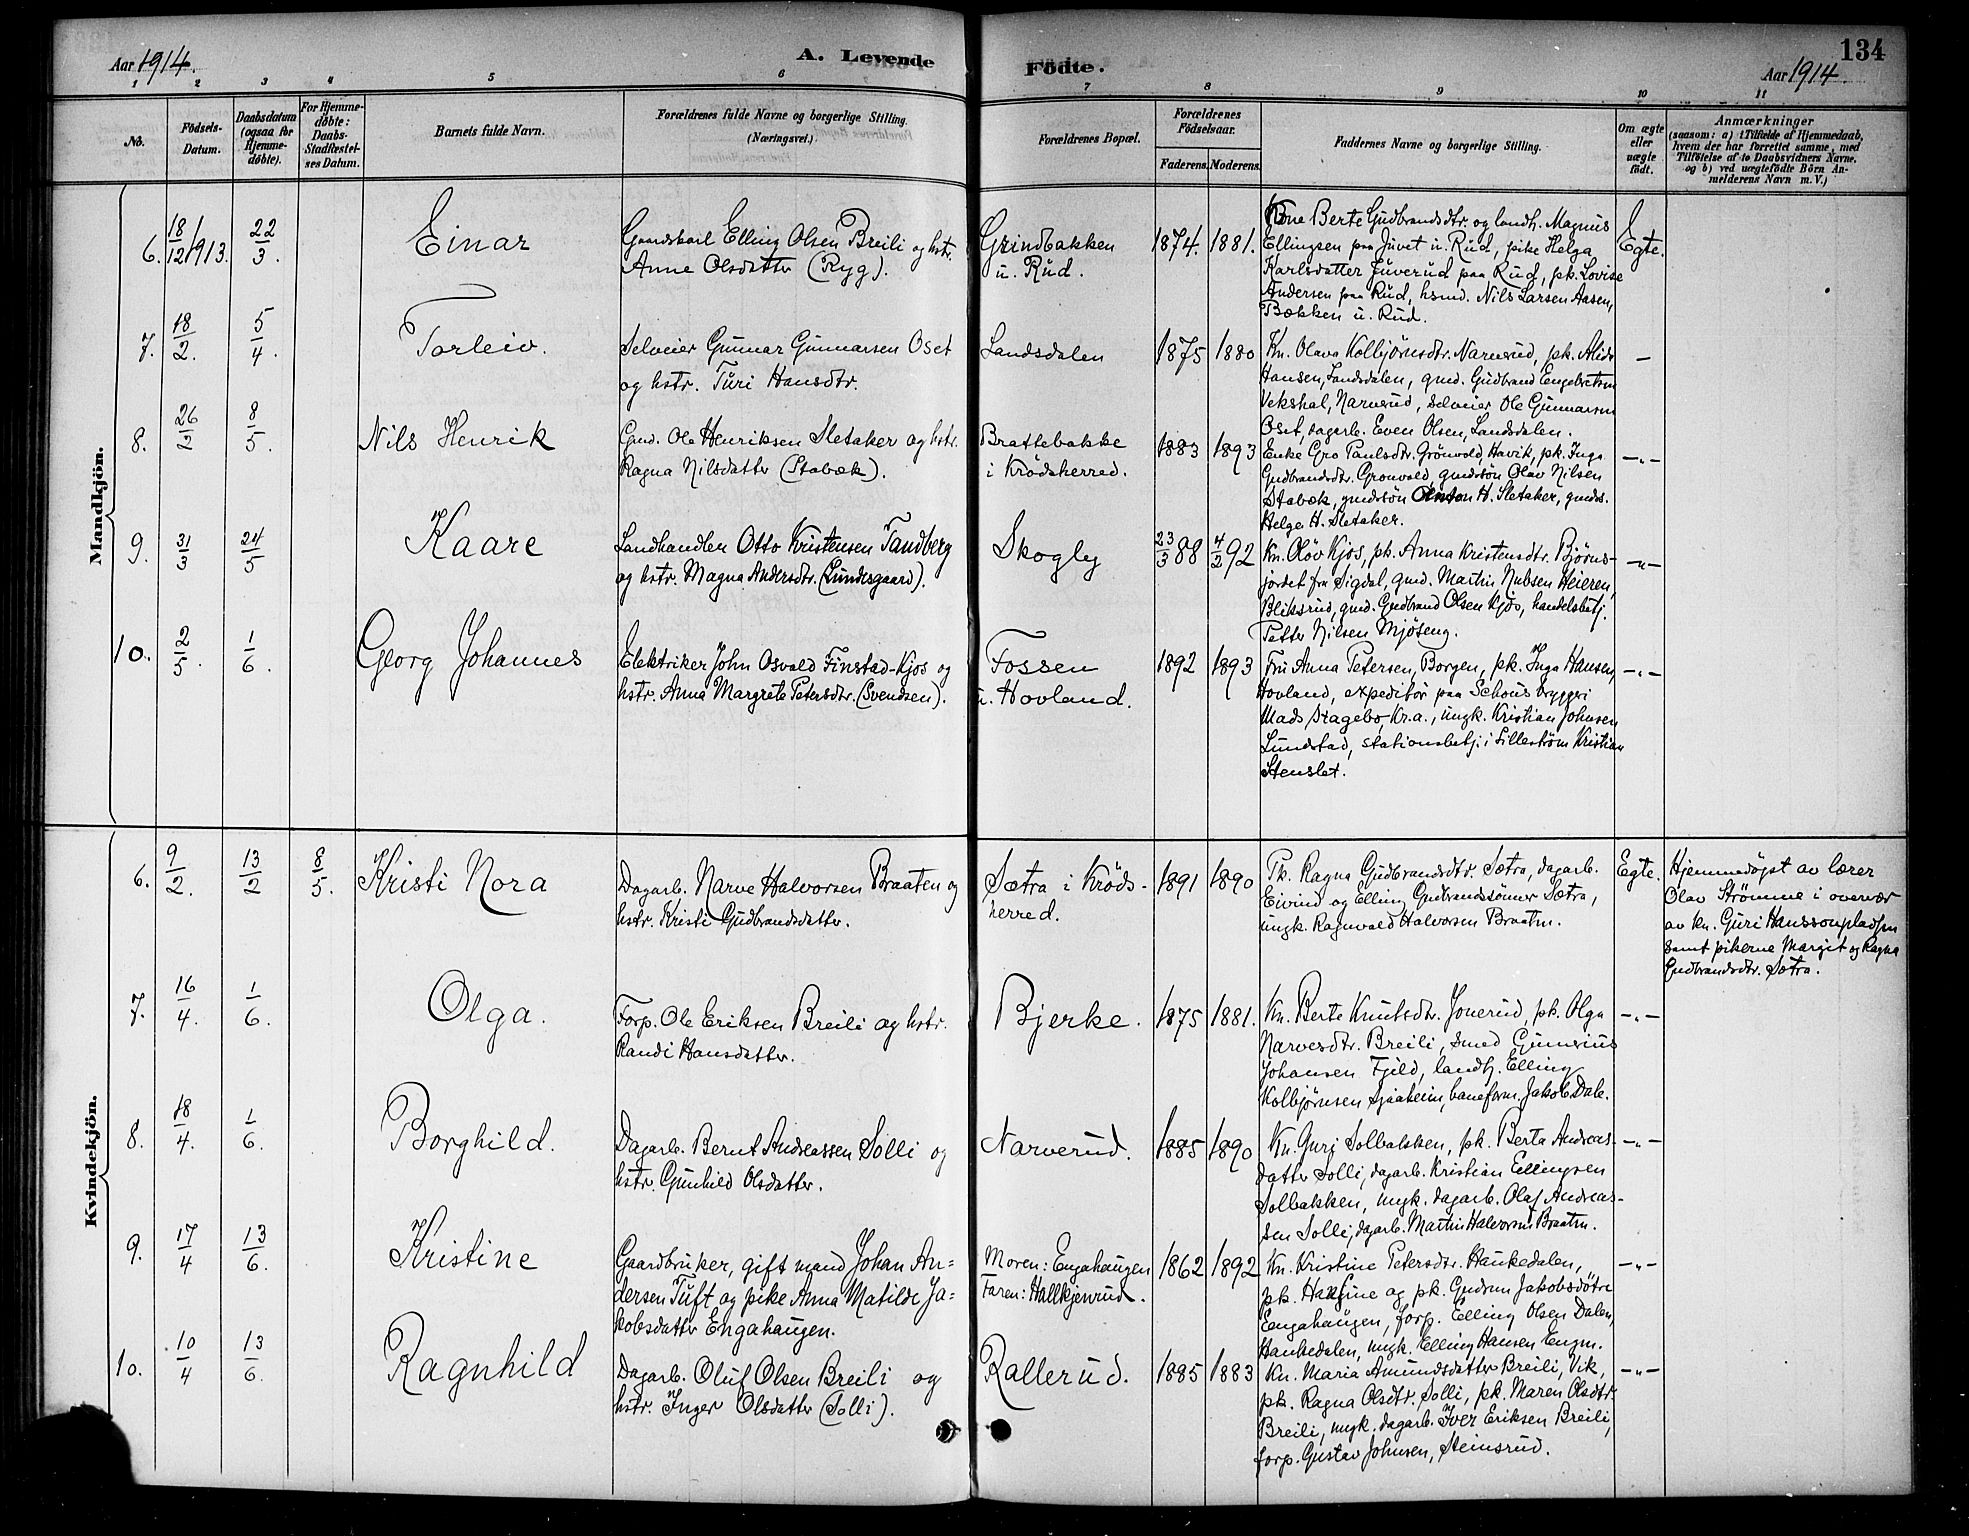 Aar 1914.
A. Levende
Fødte.
134
Aar 1914.
1 2 3 4 5 6 7 8 9 10 11
No.
Fødsels-Datum.
Daabsdatum (ogsaa for Hjemme-døbte).
For Hjemme-døbte: Daabs-Stadfæstel-ses Datum.
Barnets fulde Navn.
Forældrenes fulde Navne og borgerlige Stilling. (Næringsvei.)
Forældrenes Bopæl.
Forældrenes Fødselsaar.
Faderens. Moderens.
Faddernes Navne og borgerlige Stilling.
Om ægte eller uægte født.
Anmærkninger
(saasom: a) i Tilfælde af Hjemmedaab,
hvem der har forrettet samme, med
Tilføielse af to Daabsvidners Navne,
og b) ved uægtefødte Børn An-
melderens Navn m. V.)
Mandkjön.
6. 18/12 1913. 22/3. Einar
Gaardskarl Elling Olsen Breili og hstr.
Anne Olsdatter (Ryg).
Grindbakken
u. Rud.
1874. 1881.
Kone Berte Gudbrandsdtr. og landh. Magnus
Ellingsen paa Juvet u. Rud, pike Helga
Karlsdatter Juverud paa Rud, pk. Lovise
Andersen paa Rud, hsmd. Nils Larsen Aasen,
Bækken u. Rud.
Egte.
7. 18/2. 5/4. Torleiv.
Selveier Gunnar Gunnarsen Oset
og hstr. Turi Hansdtr.
Landsdalen
1875 1880
Kn. Olava Kolbjørnsdtr. Narverud, pk. Alida
Hansen, Landsdalen, gmd. Gudbrand Engebretsen
Vekshal, Narverud, selveier Ole Gunnarsen
Oset, dagarb. Even Olsen, Landsdalen.
—
8. 26/2 8/5. Nils Henrik
Gmd. Ole Henriksen Sletaker og hstr.
Ragna Nilsdatter (Stabæk).
Brattebakke
i Krödsherred.
1883 1893
Enke Gro Paulsdtr. Grönvold, Havik, pk. Inga
Gudbrandsdtr. Grönvold, gmdssön Olav Nilsen
Stabæk, gmdssön Anton H. Sletaker, gmdss.
Helge H. Sletaker.
—„—
9. 31/3 24/5 Kaare
Landhandler Otto Kristensen Tandberg
og hstr. Magna Andersdtr. (Lundesgaard).
Skogly
23/3 88 4/2 92
Kn. Olöv Kjos, pk. Anna Kristensdtr. Bjørns-
jordet fra Sigdal, gmd. Martin Nubsen Heieren,
Bliksrud, gmd. Gudbrand Olsen Kjos, handelsbetj.
Petter Nilsen Mjöseng.
—„—
10. 2/5. 1/6. Georg Johannes
Elektriker John Osvald Finstad-Kjos og
hstr. Anna Margrete Petersdtr. (Svendsen).
Fossen
u. Hovland.
1892 1893
Fru Anna Petersen, Borgen, pk. Inga Hansen,
Hovland, expeditör paa Schous bryggeri
Mads Stagebo, Kr.a., ungk. Kristian Johnsen
Lundstad, stationsbetj. i Lilleström Kristian
Stenslet.
—„—
Kvindekjön.
6. 9/2. 13/2 8/5. Kristi Nora
Dagarb. Narve Halvorsen Braaten og
hstr. Kristi Gudbrandsdatter.
Sætra i Kröds-
herred.
1891 1890
Pk. Ragna Gudbrandsdtr. Sætra, dagarb.
Eivind og Elling Gudbrandssönner Sætra,
ungk. Ragnvald Halvorsen Braaten.
Egte.
Hjemmedöpt av lærer
Olav Strömme i overvær
av kn. Guri Hanssonpladsen
samt pikerne Margit og Ragna
Gudbrandsdtr. Sætra.
7. 16/4. 1/6. Olga.
Forp. Ole Eriksen Breili og hstr.
Randi Hansdatter.
Bjerke.
1875 1881.
Kn. Berte Knutsdtr. Jonerud, pk. Olga
Narvesdtr. Breili, smed Gunerius
Johansen Fjeld, landh. Elling
Kolbjörnsen Sjaaheim, baneform. Jakob Dale.
—„—
8. 18/4. 1/6. Borghild.
Dagarb. Bernt Andreassen Solli og
hstr. Gunhild Olsdatter.
Narverud.
1885 1890
Kn. Guri Solbakken, pk. Berta Andreas-
datter Solli, dagarb. Kristian Ellingsen
Solbakken, ungk. dagarb. Olaf Andreas-
sen Solli, dagarb. Martin Halvorsen Braaten.
—„—
9. 17/4 13/6. Kristine
Gaardbruker, gift mand Johan An=
dersen Tuft og pike Anna Matilde Ja=
kobsdatter Engahaugen.
Moren: Engahaugen
Faren: Hallkjenrud.
1862 1892
Kn. Kristine Petersdtr. Haukedalen,
pk. Hansine og pk. Gudrun Jakobsdötre
Engahaugen, forp. Elling Olsen Dalen,
Haukedalen, ungk. Elling Hansen Engen.
—„—
10. 10/4 13/6. Ragnhild
Dagarb. Oluf Olsen Breili og
hstr. Inger Olsdatter (Solli).
Rallerud.
1885 1883
Kn. Maria Amundsdatter Breili, Vik,
pk. Ragna Olsdtr. Solli, pk. Maren Olsdtr.
Breili, ungk. dagarb. Iver Eriksen Breili,
forp. Gustav Johnsen, Steinsrud.
—„—